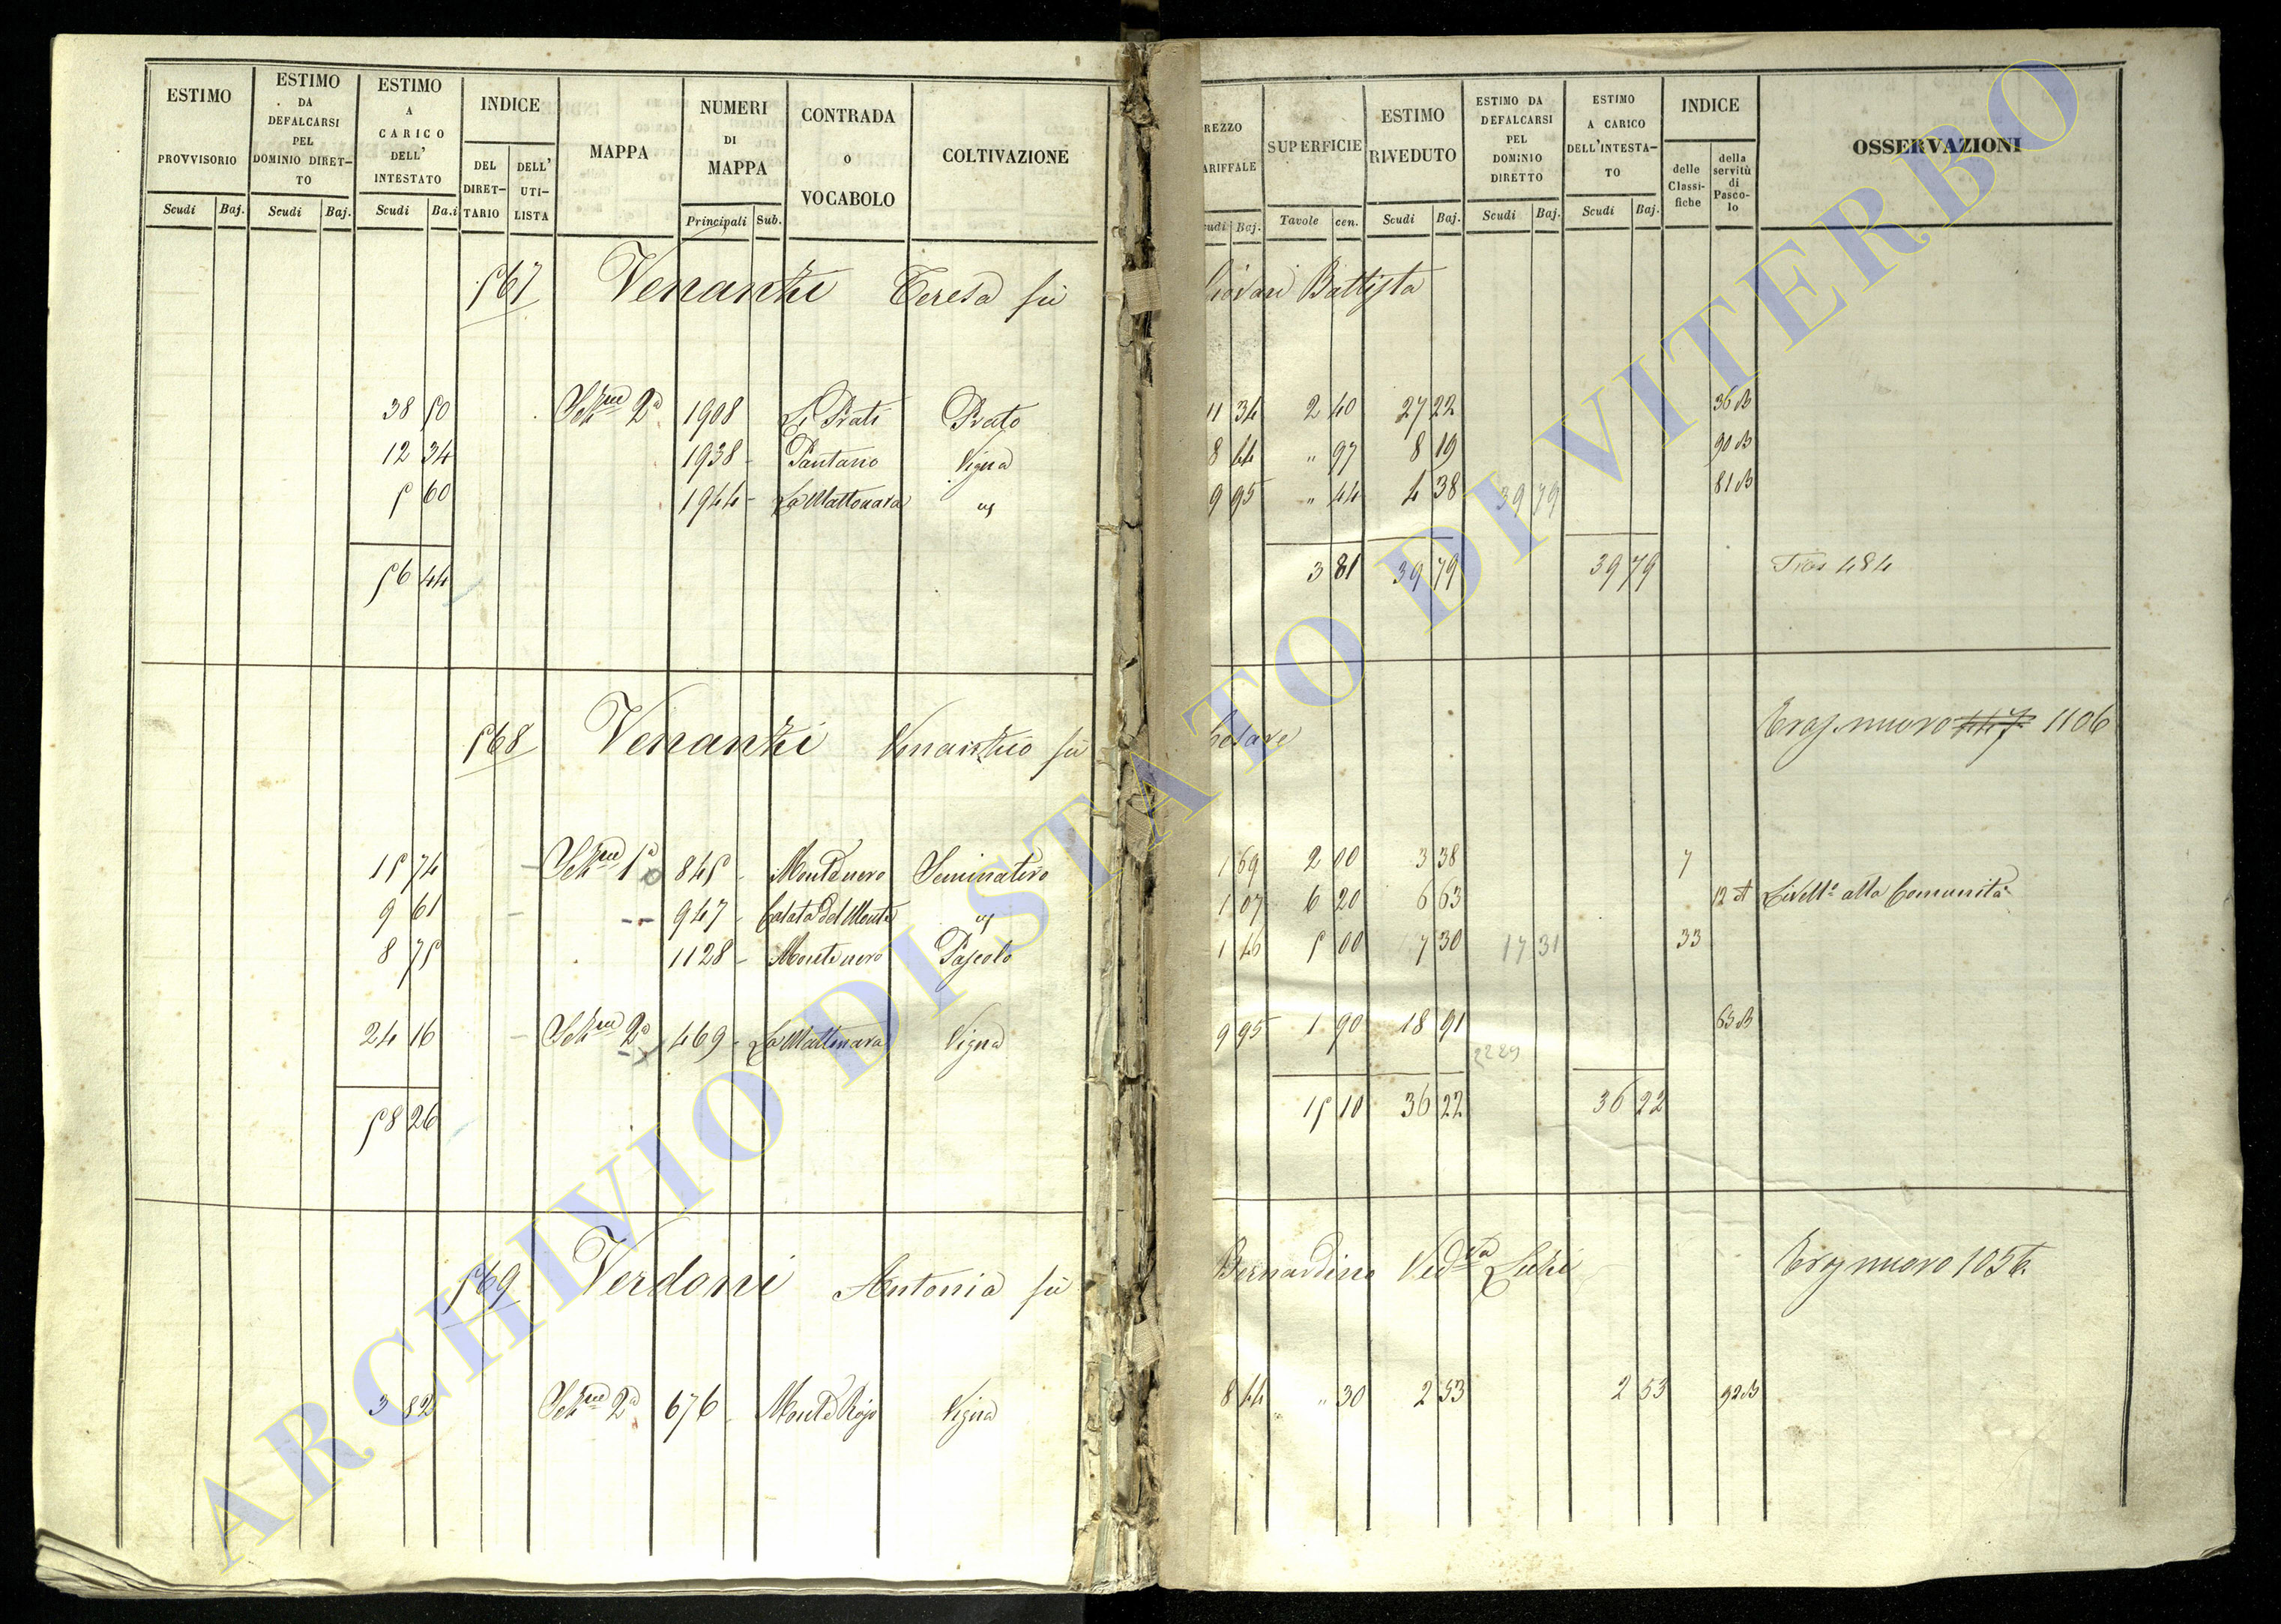 ESTIMO PROVVISORIO Scudi Baj.
ESTIMO DA DEFALCARSI PEL DOMINIO DIRETTO Scudi Baj.
ESTIMO A CARICO DELL' INTESTATO Scudi Ba.i
INDICE DEL DIRETTARIO DELL' UTILISTA
MAPPA
NUMERI DI MAPPA Principali Sub.
CONTRADA o VOCABOLO
COLTIVAZIONE
REZZO ARIFFALE udi Baj.
SUPERFICIE Tavole cen.
ESTIMO RIVEDUTO Scudi Baj.
ESTIMO DA DEFALCARSI PEL DOMINIO DIRETTO Scudi Baj.
ESTIMO A CARICO DELL'INTESTATO Scudi Baj.
INDICE delle Classifiche della servitù di Pascolo
OSSERVAZIONI
567 Venanzi Teresa fù Giovan Battista
38 50 Sezne 2a 1908 Li Prati Prato 11 34 2 40 27 22 36 B
12 34 1938 - Pantano Vigna 8 44 " 97 8 19 90 B
5 60 1944 - La Mattonara " 9 95 " 44 4 38 39 79 81 B
56 44 3 81 39 79 39 79 484
568 Venanzi Venanzio fù Cesare Trasp. nuovo 447 1106
15 74 - Sezne 1a 845 - Montenero Seminativo 1 69 2 00 3 38 7
9 61 - 947 - Calata del Monte " 1 07 6 20 6 63 12 A Livello alla Comunità
8 75 1128 - Montenero Pascolo 1 46 5 00 7 30 17 31 33
24 16 - Sezne 2a 469 - La Mattonara Vigna 9 95 1 90 18 91 63 B
2229
58 26 15 10 36 22 36 22
569 Verdoni Antonia fù Bernardino Vedva Luzi Trasp nuovo 1056
3 82 Sezne 2a 676 - Monte Rojo Vigna 8 44 " 30 2 53 2 53 92 B
ARCHIVIO DI STATO DI VITERBO